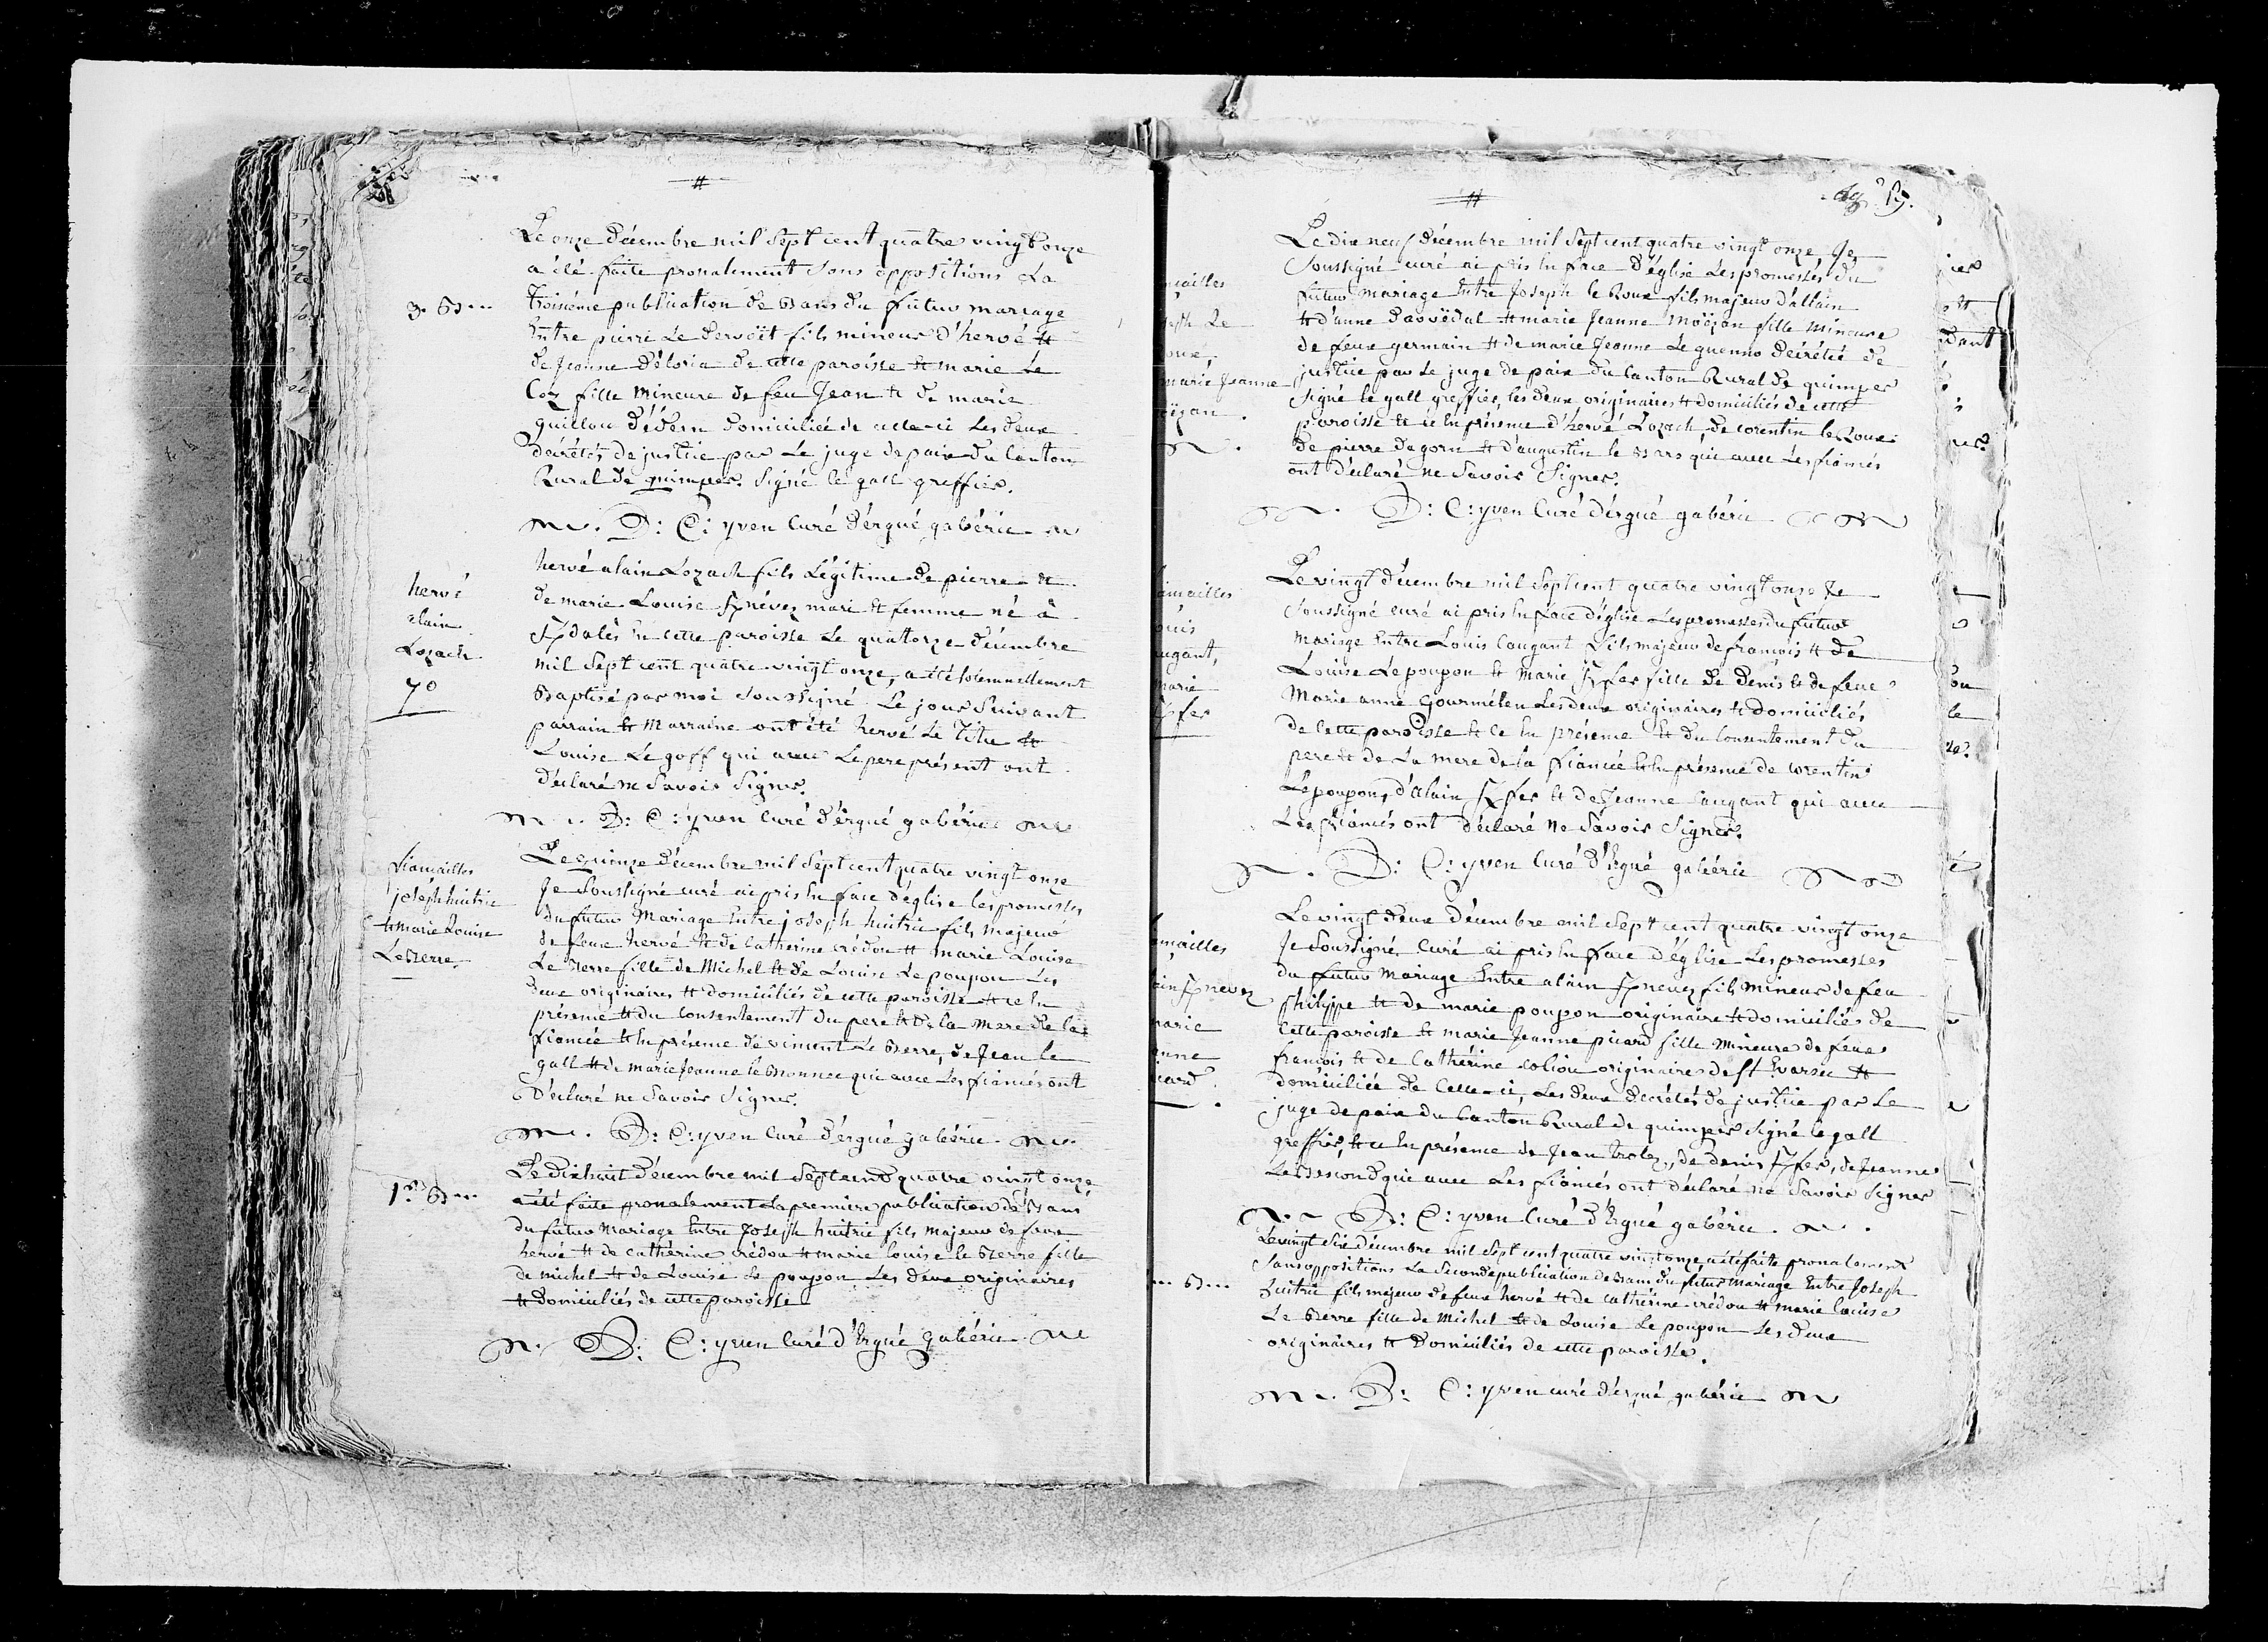 Le onze décembre mil sept cent quatre vingt onze
a été faite pronalement sans oppositions La
3. B...
troisième publication de Bans du futur mariage
Entre pierre Le Dervoët fils mineur d'hervé &
de Jeanne Déloria de cette paroisse & marie Le
Coz fille Mineure de feu Jean & de marie
guillou d'Edern domiciliée de celle-ci Les deux
décrétés de justice par Le juge de paix du Canton
Rural de quimper. Signé le gall greffier.
D: C: yven Curé d'ergué gabéric
hervé alain Lozach fils Légitime de pierre &
hervé
alain
Lozach
70
de marie Louise Kneves mari & femme né à
Kdalès En cette paroisse Le quatorze décembre
mil Sept cent quatre vingt onze, a été solemnellement
Baptisé par moi soussigné Le jour Suivant
parrain & Marraine ont été hervé Le &
Louise Le goff qui avec Le pere présent ont
déclaré ne Savoir Signer.
D: C: yven Curé d'ergué gabéric
Le quinze décembre mil Sept cent quatre vingt onze
fiançailles
joseph huitric
& marie Louise
Le Berre.
Je Soussigné curé ai pris En face d'église les promesses
du futur Mariage Entre joseph huitric fils Majeur
de feux hervé & de Catherine crédou & marie Louise
Le Berre fille de Michel & de Louise Le poupon Les
deux originaires & domiciliés de cette paroisse & ce En
présence & du Consentement du pere & de La Mere de La
fiancée & En présence de vincent Le Berre, de Jean le
gall & de marie Jeanne le Bronnec qui avec Les fiancés ont
Déclaré ne Savoir Signer.
D: C: yven Curé d'ergué gabéric
Le dixhuit décembre mil Sept cent quatre vingt onze
1re B...
a été faite pronalement La premiere publication de Bans
du futur Mariage Entre Joseph huitric fils Majeur de feux
hervé & de catherine crédou & marie louise le Berre fille
de michel & de Louise Le poupon Les deux originaires
& domiciliés de cette paroisse
D: C: yven Curé d'Ergué gabéric
19.
Le dix neuf décembre mil Sept cent quatre vingt onze, Je
Soussigné curé ai pris En face d'église Les promesses du
futur Mariage Entre Joseph le Roux fils majeur d'allain
& d'anne & marie Jeanne Moëzan fille Mineure
de feux germain & de marie Jeanne Le guenno décrétée de
justice par Le juge de paix du Canton Rural de quimper
Signé Le gall greffier, les deux originaires & domiciliés de cette
paroisse & ce En présence d'hervé Lozach, de corentin le Roux
de pierre dagorn & d'augustin le Bars qui avec Les fiancés
ont déclaré ne Savoir Signer.
D: C: yven Curé d'ergué gabéric
Le vingt décembre mil Sept cent quatre vingt onze Je
Soussigné curé ai pris En face d'église Les promesses du futur
Mariage Entre Louis Caugant fils majeur de françois & de
Louise Le poupon & Marie Kfer fille de Denis & de feue
Marie anne Gourmélen Les deux originaires & domiciliés
de cette paroisse & ce En présence & du Consentement du
pere & de La mere de La fiancée & En présence de corentin
Le poupon, d'alain Kfer & de Jeanne Caugant qui avec
Les fiancés ont déclaré Ne Savoir Signer.
D: C: yven Curé d'Ergué gabéric
Le vingt deux décembre mil Sept cent quatre vingt onze
Je Soussigné Curé ai pris En face d'église Les promesses
du futur Mariage Entre alain Kneves fils Mineur de feu
philippe & de marie poupon originaire & domiciliés de
cette paroisse & marie Jeanne picard fille Mineure de feux
françois & de Catherine coliou originaires de St Evarzec &
domiciliée de Celle-ci, Les deux décrétés de justice par Le
juge de paix du Canton Rural de quimper Signé le gall
greffier, & ce En présence de Jean trolez, de denis Kfer, de Jeanne
Le Bescond qui avec Les fiancés ont déclaré ne Savoir Signer
D: C: yven Curé d'Ergué gabéric.
Le vingt Six décembre mil Sept cent quatre vingt onze a été faite pronalement
Sans oppositions La Seconde publication de Bans du futur Mariage Entre Joseph
... B...
huitric fils majeur de feux hervé & de catherine crédou & marie louise
Le Berre fille de Michel & de Louise Le poupon Les deux
originaires & domiciliés de cette paroisse.
D: C: yven curé d'ergué gabéric